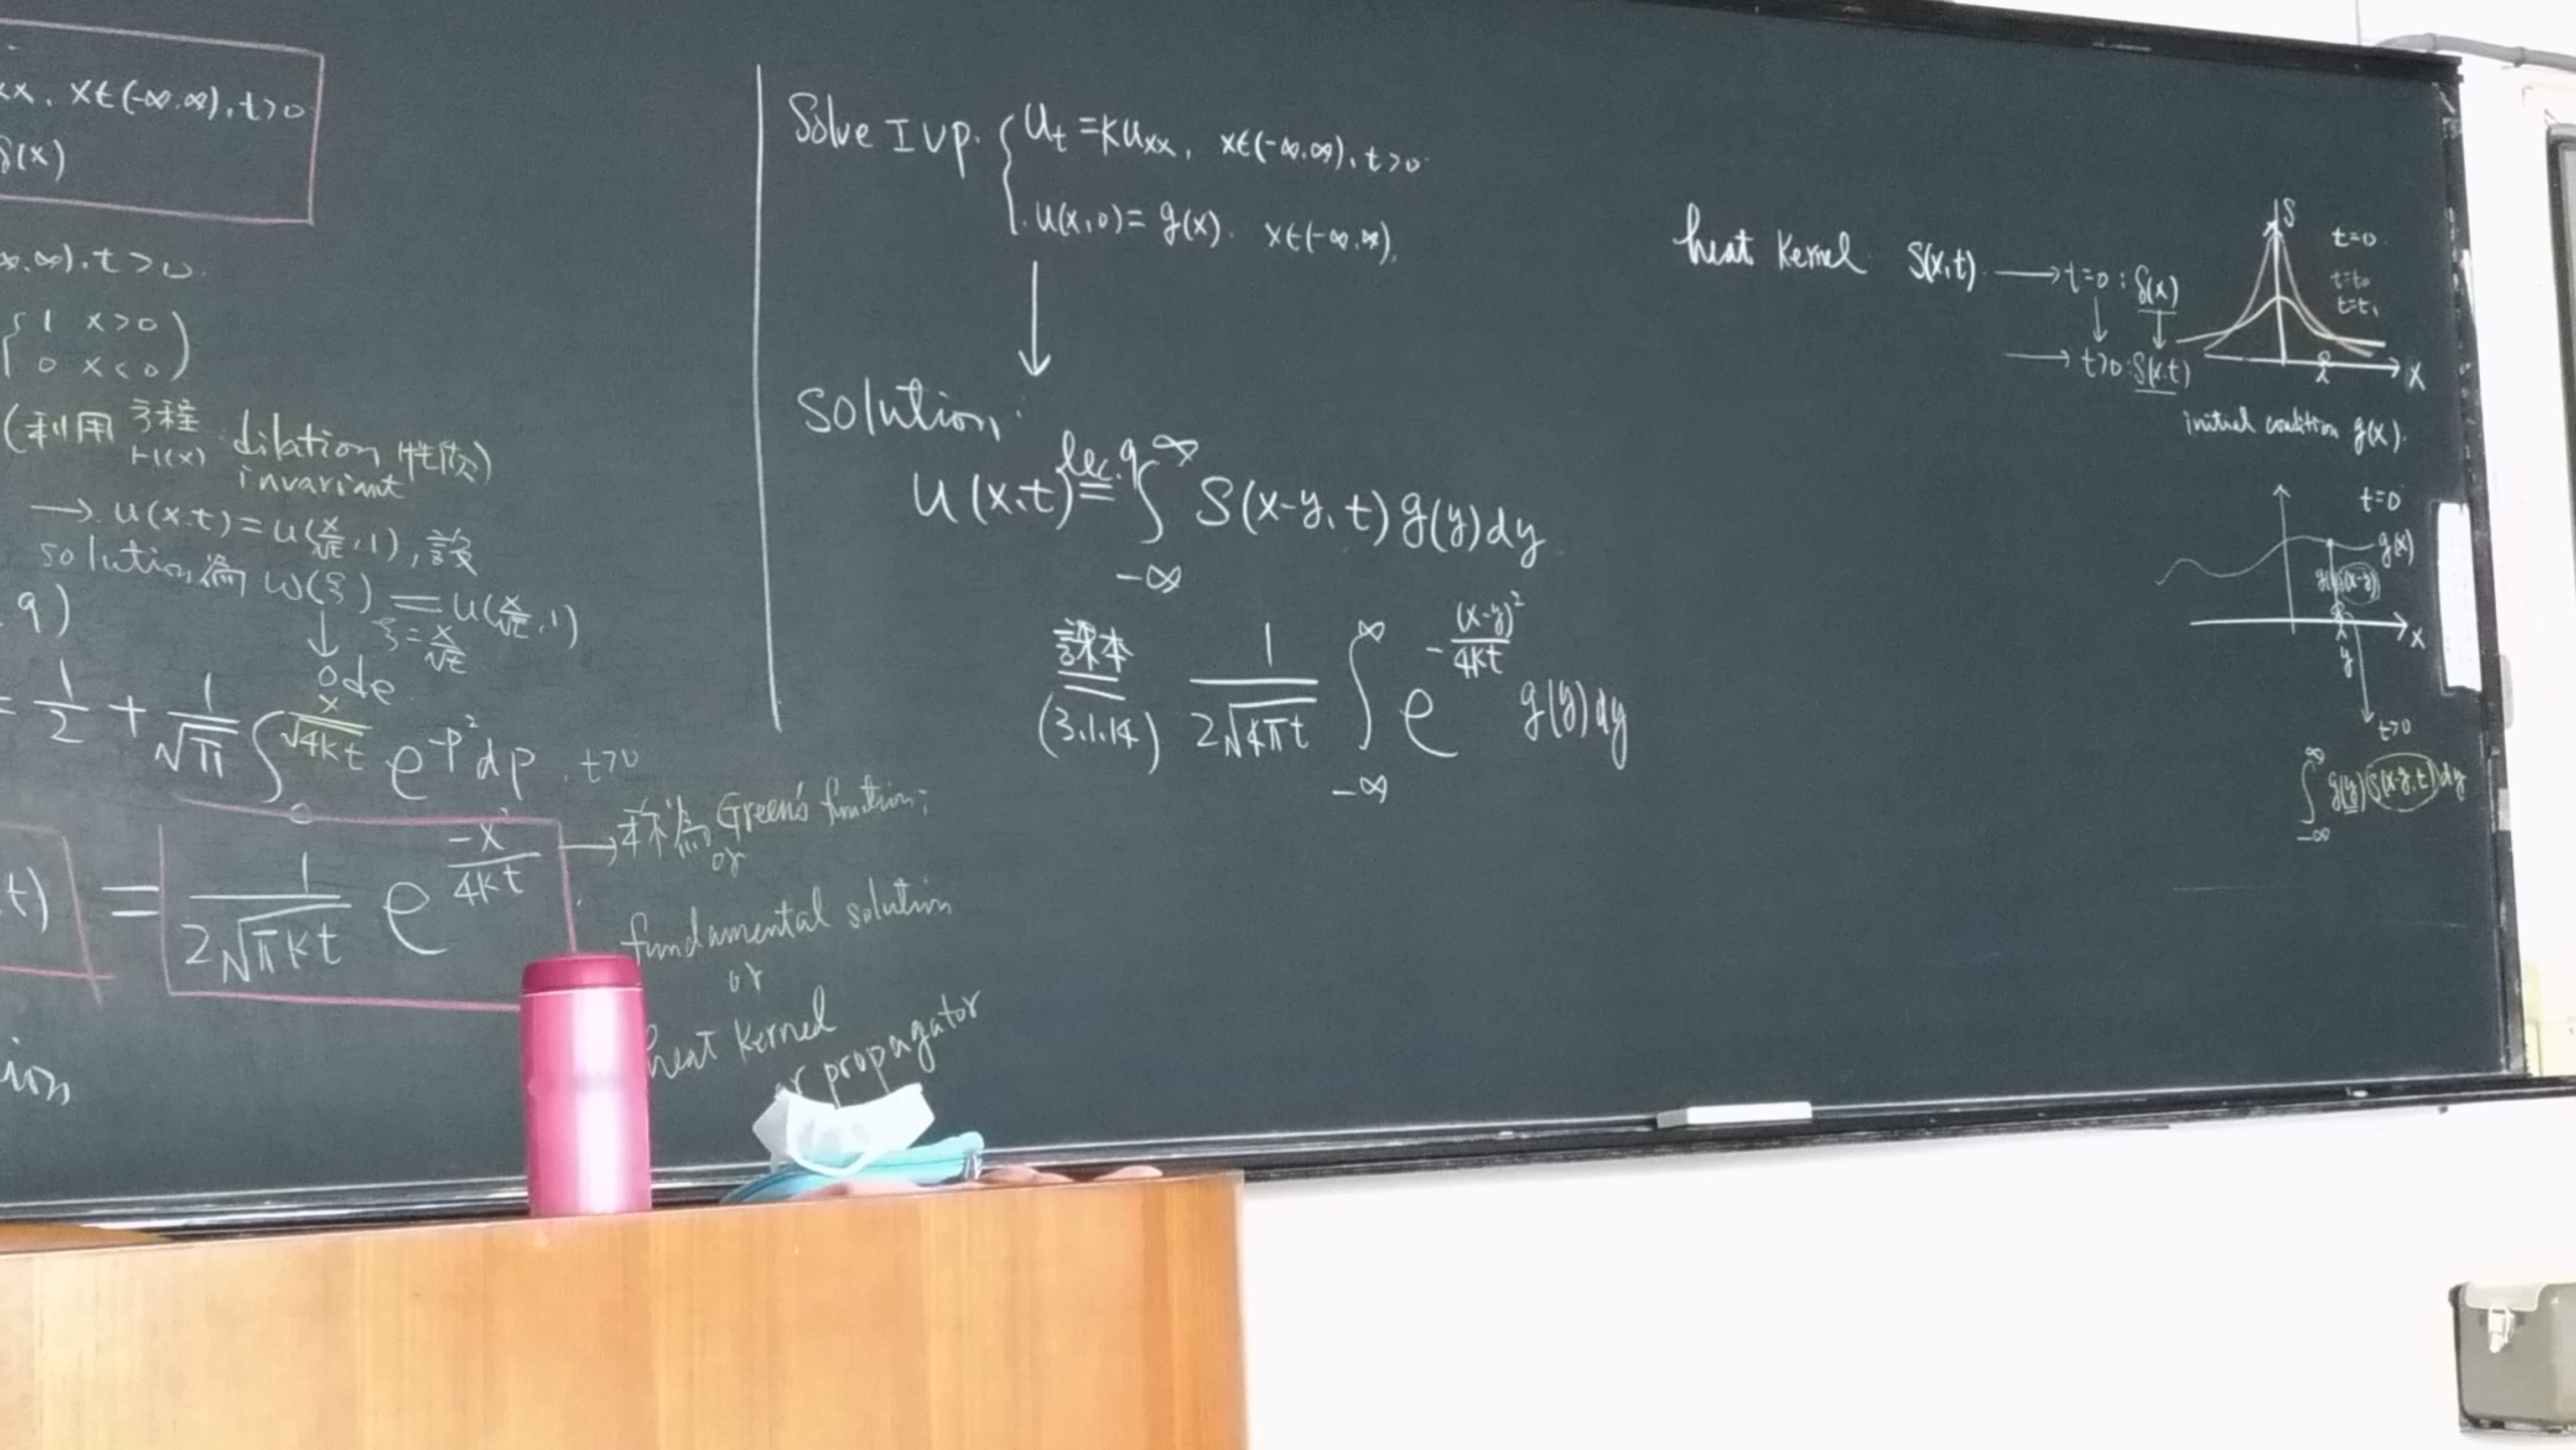 xx, x∈(-∞,∞), t>0
δ(x)
∞,∞), t>0.
{ 1 x>0
0 x<0 )
(利用 方程 dilation 性質)
H(x) invariant
→ u(x,t) = u(x/√t, 1), 設
solution為 w(ξ) = u(x/√t, 1)
ξ = x/√t
↓
ode
9)
= 1/2 + 1/√π ∫₀^(x/√4kt) e^(-p²) dp, t>0
t) = 1/(2√πkt) e^(-x²/4kt) → 稱為 Green's function,
or
fundamental solution
or
heat kernel
or propagator
ion
Solve IVP. { u_t = k u_xx, x∈(-∞,∞), t>0
u(x,0) = g(x). x∈(-∞,∞),
↓
solution:
u(x,t) =^(lec.9) ∫_(-∞)^∞ S(x-y, t) g(y) dy
課本
= 1/(2√kπt) ∫_(-∞)^∞ e^(-(x-y)²/4kt) g(y) dy
(3.1.14)
heat kernel S(x,t) → t=0 : δ(x)
→ t>0 : S(x,t)
S
t=0
t=t₀
t=t₁
x
initial condition g(x).
t=0
g(x)
g(y)δ(x-y)
x
y
t>0
∫_(-∞)^∞ g(y) S(x-y, t) dy